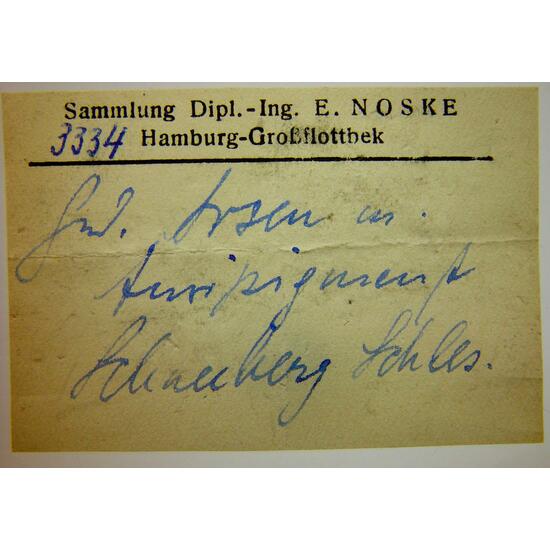 Sammlung Dipl.-Ing. E. NOSKE
3334 Hamburg-Großflottbek
Ged. Arsen m.
Auripigment
Schneeberg Schles.